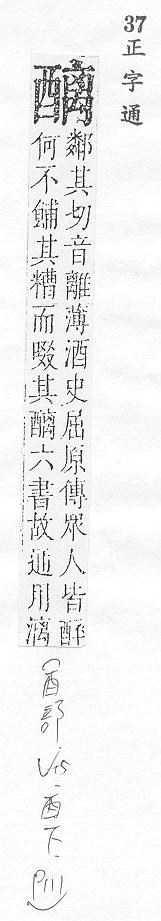 37
正字通
醨
鄰其切音離薄酒史屈原傳眾人皆醉
何不餔其糟而啜其醨六書故通用漓
(酉部 V15.酉下.P111)